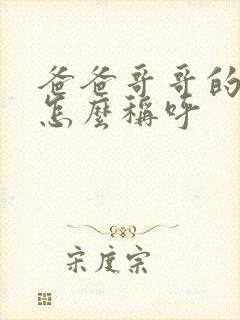 爸爸哥哥的
怎麼稱呼
宋度宗